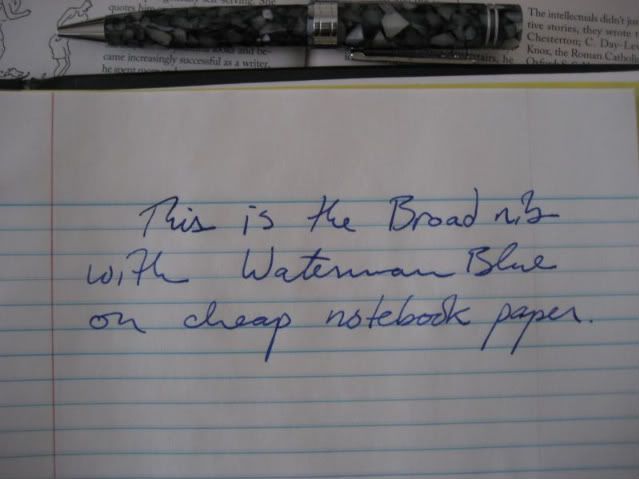 quotes him
came increasingly successful as a writer,
The intellectuals didn't ju
tive stories, they wrote t
Chesterton; C. Day-Le
Knox, the Roman Cathol
This is the Broad nib
with Waterman Blue
on cheap notebook paper.